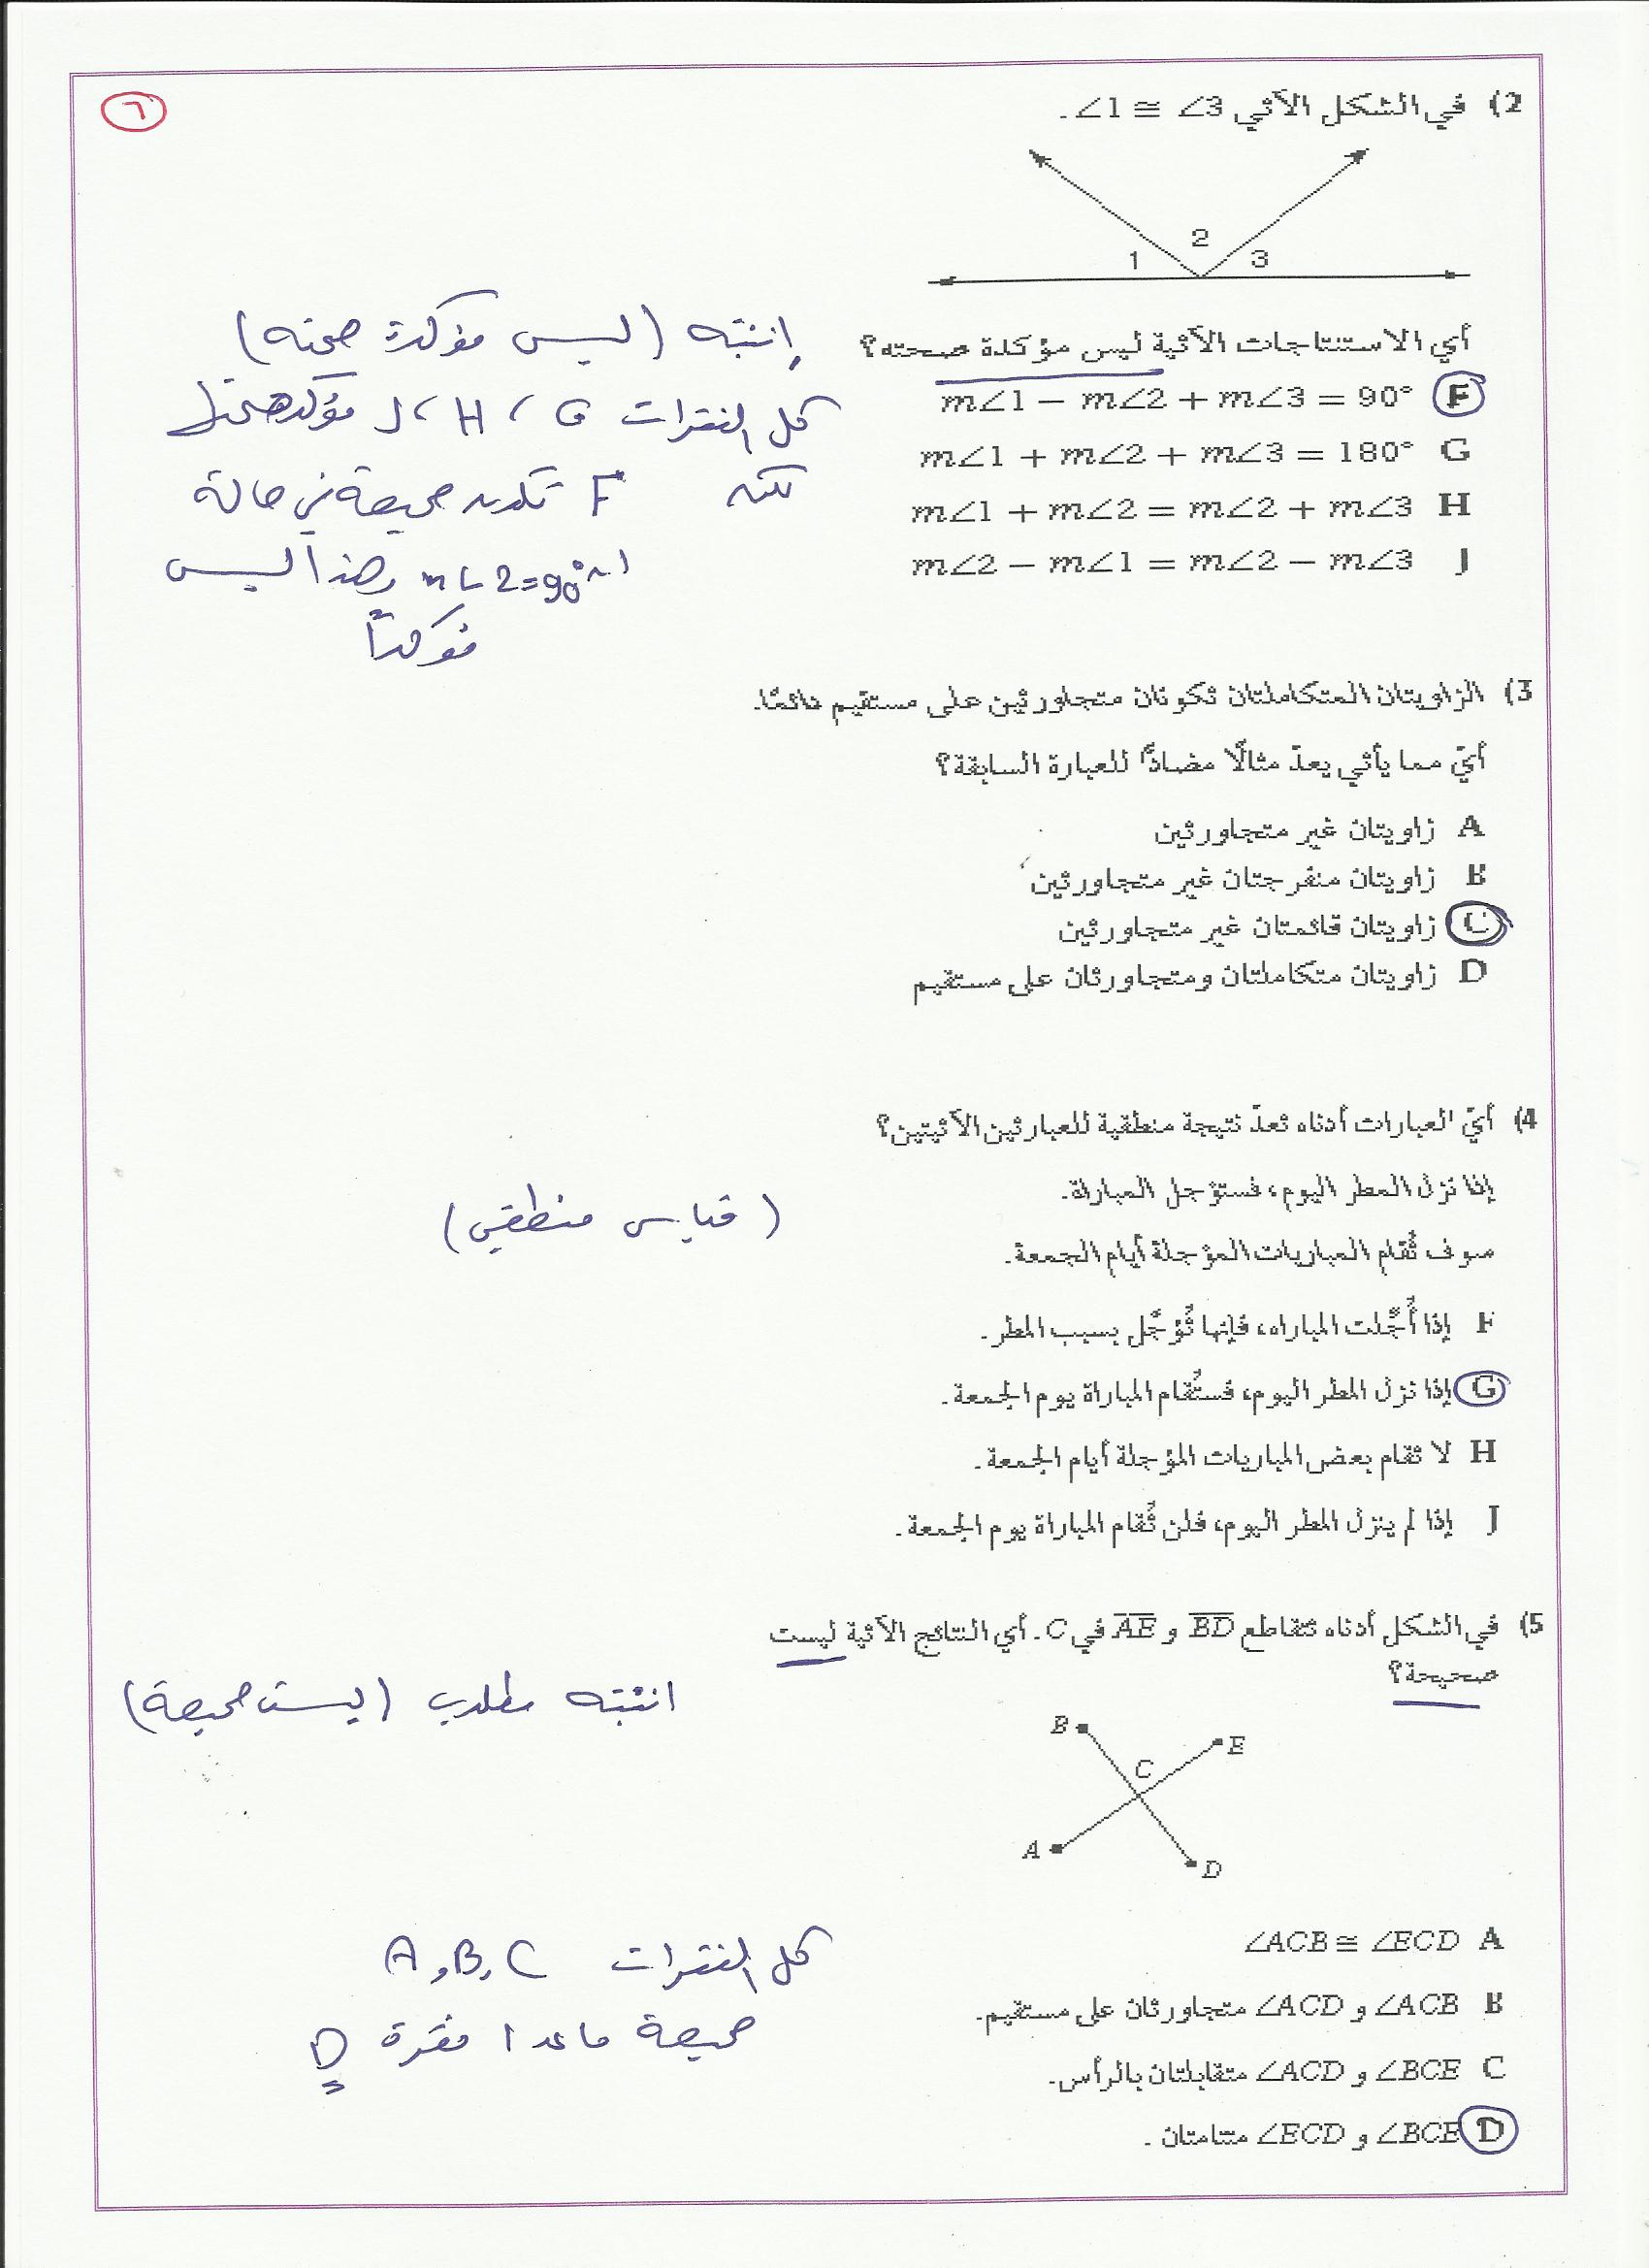 ٦
2) في الشكل الآتي ∠1 ≅ ∠3 .
1 2 3
أي الاستنتاجات الآتية ليس مؤكدة صحته؟
F m∠1 − m∠2 + m∠3 = 90°
G m∠1 + m∠2 + m∠3 = 180°
H m∠1 + m∠2 = m∠2 + m∠3
J m∠2 − m∠1 = m∠2 − m∠3
إنتبه (ليس مؤكدة صحته)
كل الفقرات J، H، G مؤكد صحتها
لكن F تكون صحيحة في حالة
m∠2=90° وهذا ليس
مؤكداً
3) الزاويتان المتكاملتان تكونان متجاورتين على مستقيم دائمًا.
أيّ مما يأتي يعدّ مثالًا مضادًّا للعبارة السابقة؟
A زاويتان غير متجاورتين
B زاويتان منفرجتان غير متجاورتين
C زاويتان قائمتان غير متجاورتين
D زاويتان متكاملتان ومتجاورتان على مستقيم
4) أيّ العبارات أدناه تعدّ نتيجة منطقية للعبارتين الآتيتين؟
إذا نزل المطر اليوم، فستؤجل المباراة.
سوف تُقام المباريات المؤجلة أيام الجمعة.
(قياس منطقي)
F إذا أُجِّلت المباراه، فإنها تُؤجَّل بسبب المطر.
G إذا نزل المطر اليوم، فستُقام المباراة يوم الجمعة.
H لا تقام بعض المباريات المؤجلة أيام الجمعة.
J إذا لم ينزل المطر اليوم، فلن تُقام المباراة يوم الجمعة.
5) في الشكل أدناه تتقاطع BD و AE في C. أي النتائج الآتية ليست
صحيحة؟
انتبه مطلوب (ليست صحيحة)
B E
C
A D
A ∠ACB ≅ ∠ECD
B ∠ACB و ∠ACD متجاورتان على مستقيم.
C ∠BCE و ∠ACD متقابلتان بالرأس.
D ∠BCE و ∠ECD متتامتان .
كل الفقرات A, B, C
صحيحة ما عدا فقرة D